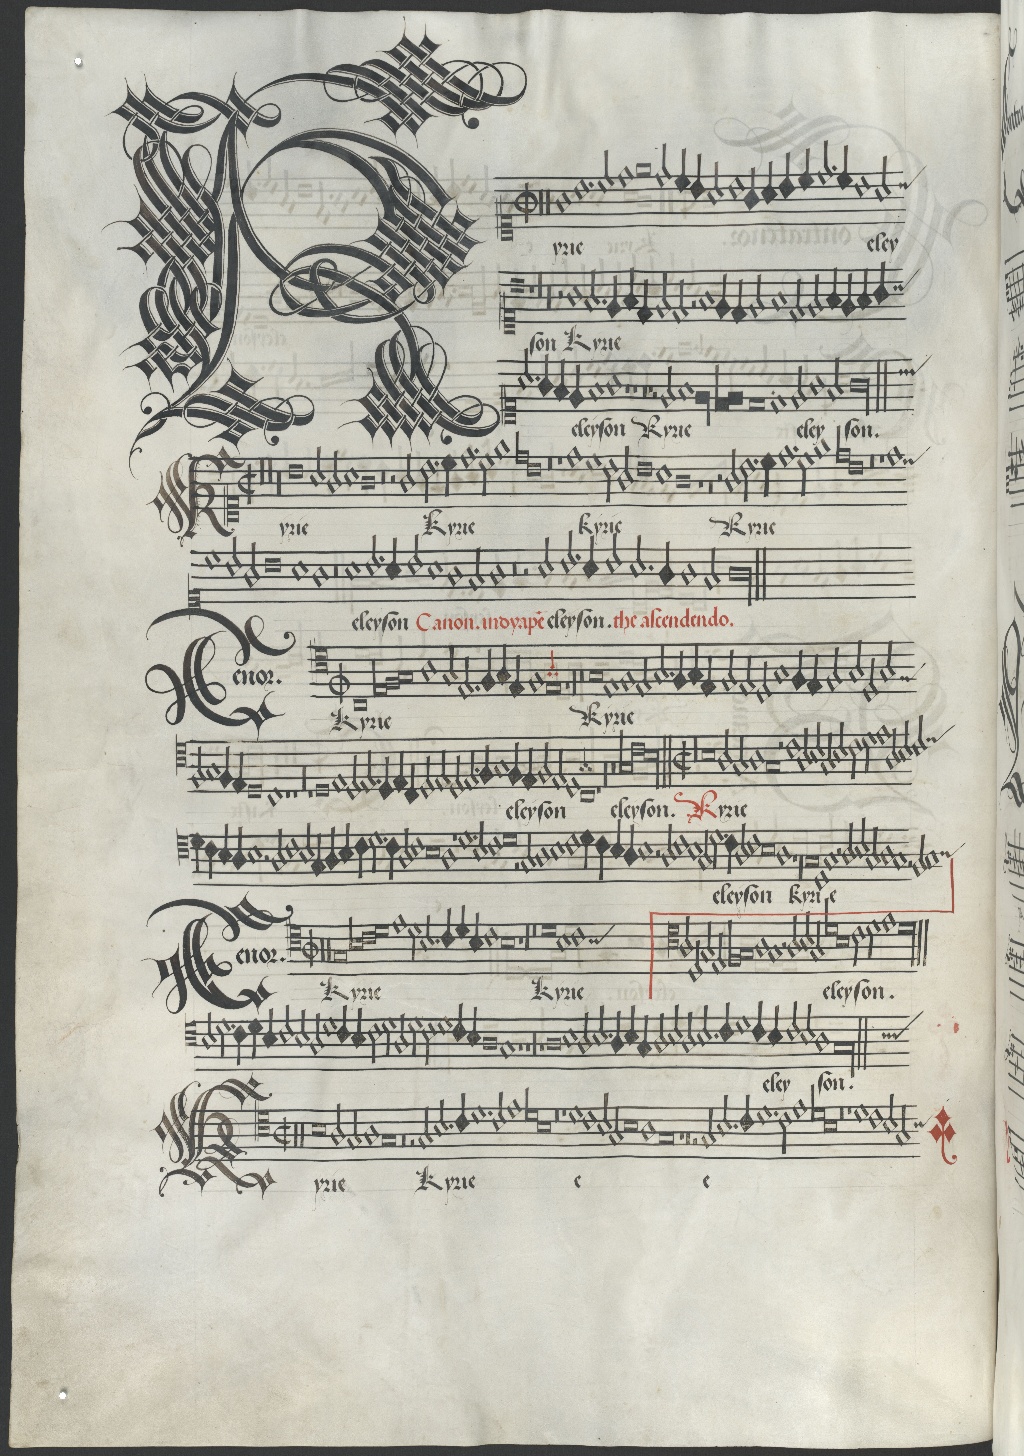 K yrie eley
son Kyrie
eleyson Kyrie eley son.
K yrie Kyrie kyrie Kyrie
eleyson Canon. eleyson. the ascendendo.
Tenor.
Kyrie Kyrie
eleyson eleyson. Kyrie
eleyson kyrie
Tenor.
Kyrie Kyrie eleyson.
eley son.
K yrie Kyrie e e